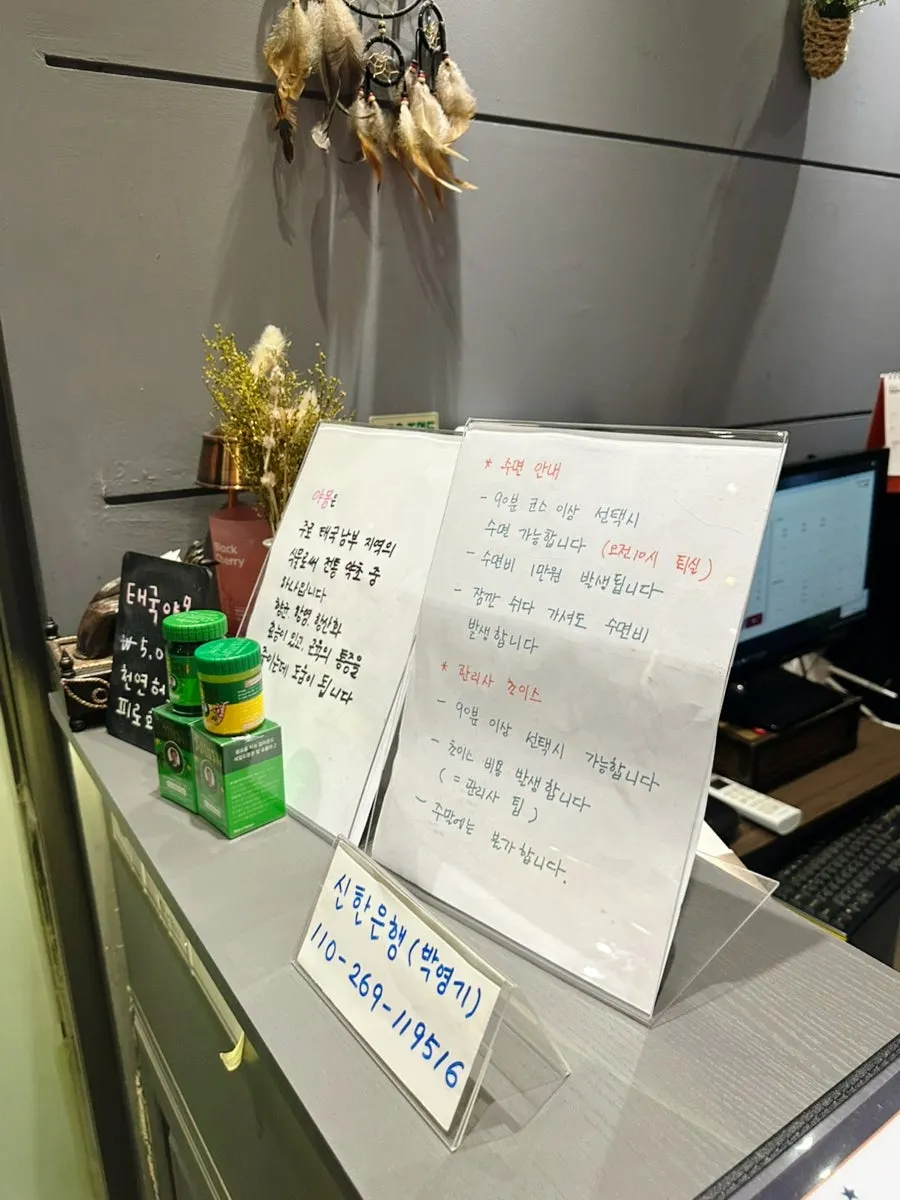 * 수면 안내
- 90분 코스 이상 선택시
수면 가능합니다 (오전10시 퇴실)
- 수면비 1만원 발생됩니다
- 잠깐 쉬다 가셔도 수면비
발생합니다
* 관리사 초이스
- 90분 이상 선택시 가능합니다
- 초이스 비용 발생합니다
( = 관리사 팁 )
- 주말에는 불가합니다.
야몽은
주로 태국남부 지역의
식물로써 전통 약초 중
하나입니다
항균 항염 항산화
효능이 있고, 근육의 통증을
줄이는데 도움이 됩니다
태국야몽
₩5.0
천연허
피로회
Black
Cherry
신한은행(박영기)
110-269-119516